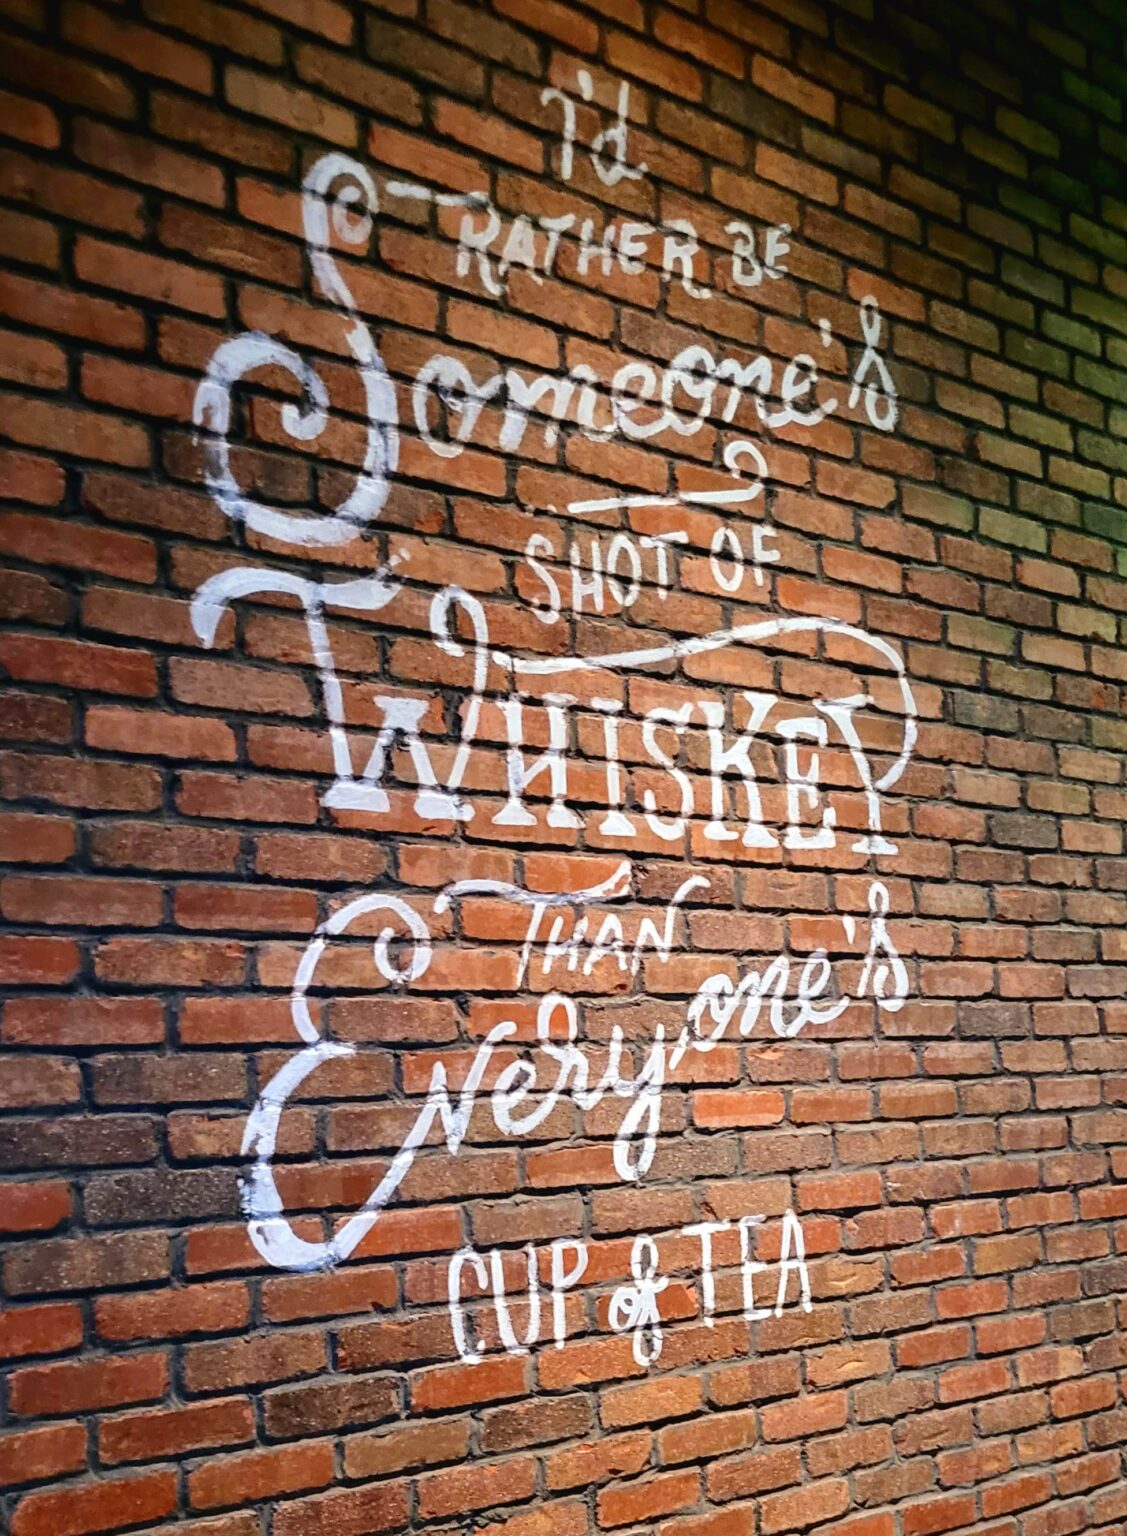 I'd
RATHER BE
Someone's
SHOT OF
WHISKEY
THAN
Everyone's
CUP of TEA